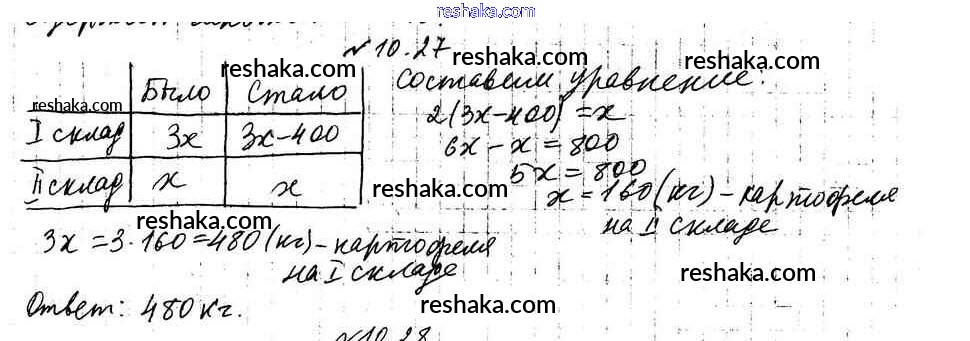 reshaka.com
№ 10.27
Составим уравнение:
Было Стало
I склад 3x 3x-400
II склад x x
2(3x-400)=x
6x-x=800
5x=800
x=160(кг)-картофеля
на II складе
3x=3·160=480(кг)-картофеля
на I складе
Ответ: 480 кг.
№10.28
reshaka.com
reshaka.com
reshaka.com
reshaka.com
reshaka.com
reshaka.com
reshaka.com
reshaka.com
reshaka.com
reshaka.com